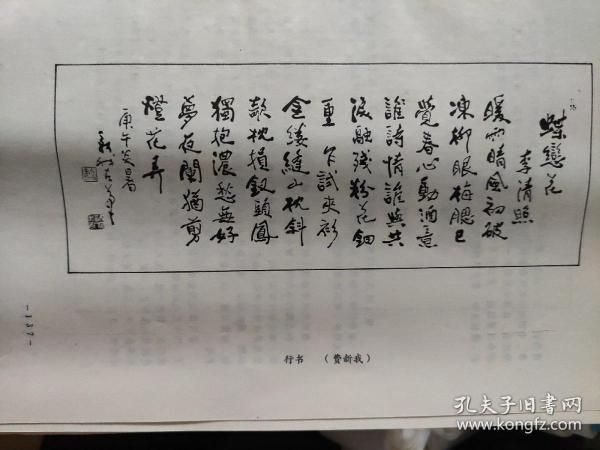 蝶戀花
李清照
暖雨晴風初破
凍柳眼梅腮已
覺春心動酒意
誰詩情誰與共
淚融残粉花鈿
重乍試夾衫
金縷縫山枕斜
欹枕損釵頭鳳
獨抱濃愁無好
夢夜闌猶剪
燈花弄
庚午炎暑
新我左筆
行书 （费新我）
-137-
孔夫子旧书网
www.kongfz.com